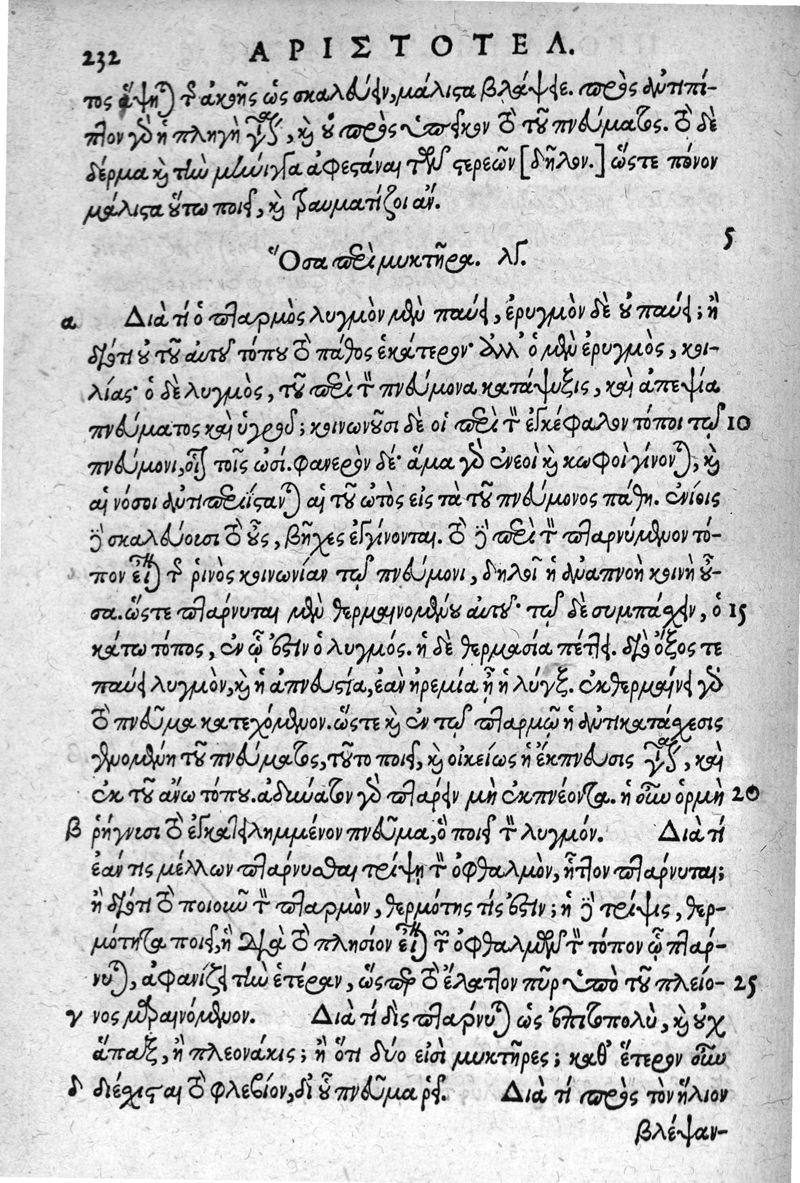 232 ΑΡΙΣΤΟΤΕΛ.
τος ἅψηται τῆς ἀκοῆς ὡς σκαλεύειν, μάλιστα βλάψειε. πρὸς ἀντιπί-
πτον γὰρ ἡ πληγὴ γίνεται, καὶ οὐ πρὸς ὑπεῖκον τὸ τοῦ πνεύματος. τὸ δὲ
δέρμα καὶ τὴν μήνιγγα ἀφεστάναι τῶν στερεῶν [δῆλον.] ὥστε πόνον
μάλιστα οὕτω ποιεῖ, καὶ τραυματίζοι ἄν.
5
Ὅσα περὶ μυκτῆρα. λγ.
α Διὰ τί ὁ πταρμὸς λυγμὸν μὲν παύει, ἐρυγμὸν δὲ οὐ παύει; ἢ
διότι οὐ τοῦ αὐτοῦ τόπου τὸ πάθος ἑκάτερον· ἀλλ' ὁ μὲν ἐρυγμὸς, κοι-
λίας· ὁ δὲ λυγμὸς, τοῦ περὶ τὸν πνεύμονα κατάψυξις, καὶ ἀπεψία
πνεύματος καὶ ὑγροῦ; κοινωνοῦσι δὲ οἱ περὶ τὸν ἐγκέφαλον τόποι τῷ 10
πνεύμονι, οἷον τοῖς ὠσί. φανερὸν δέ· ἅμα γὰρ ἐνεοὶ καὶ κωφοὶ γίνονται, καὶ
αἱ νόσοι ἀντιπεριίστανται αἱ τοῦ ὠτὸς εἰς τὰ τοῦ πνεύμονος πάθη. ἐνίοις
γὰρ σκαλεύουσι τὸ οὖς, βῆχες ἐγγίνονται. τὸ γὰρ περὶ τὸν πταρνύμενον τό-
πον εἶναι τῆς ῥινὸς κοινωνίαν τῷ πνεύμονι, δηλοῖ ἡ ἀναπνοὴ κοινὴ οὖ-
σα. ὥστε πτάρνυται μὲν θερμαινομένου αὐτοῦ· τῷ δὲ συμπάσχειν, ὁ 15
κάτω τόπος, ἐν ᾧ ἐστιν ὁ λυγμός. ἡ δὲ θερμασία πέττει. διὸ ὄξος τε
παύει λυγμὸν, καὶ ἡ ἀπνευστία, ἐὰν ἠρεμία ᾖ ἡ λύγξ. ἐκθερμαίνει γὰρ
τὸ πνεῦμα κατεχόμενον. ὥστε καὶ ἐν τῷ πταρμῷ ἡ ἀντικατάσχεσις
γινομένη τοῦ πνεύματος, τοῦτο ποιεῖ, καὶ οἰκείως ἡ ἔκπνευσις γίνεται, καὶ
ἐκ τοῦ ἄνω τόπου. ἀδύνατον γὰρ πταρεῖν μὴ ἐκπνέοντα. ἡ οὖν ὁρμὴ 20
β ῥήγνυσι τὸ ἐγκατειλημμένον πνεῦμα, ὃ ποιεῖ τὸν λυγμόν. Διὰ τί
ἐάν τις μέλλων πτάρνυσθαι τρίψῃ τὸν ὀφθαλμὸν, ἧττον πτάρνυται;
ἢ διότι τὸ ποιοῦν τὸν πταρμὸν, θερμότης τίς ἐστιν; ἡ γὰρ τρίψις, θερ-
μότητα ποιεῖ, ἣ διὰ τὸ πλησίον εἶναι τῶν ὀφθαλμῶν τὸν τόπον ᾧ πτάρ-
νυται, ἀφανίζει τὴν ἑτέραν, ὥσπερ τὸ ἔλαττον πῦρ ὑπὸ τοῦ πλείο- 25
γ νος μαραινόμενον. Διὰ τί δὶς πτάρνυται ὡς ἐπιτοπολὺ, καὶ οὐχ
ἅπαξ, ἢ πλεονάκις; ἢ ὅτι δύο εἰσὶ μυκτῆρες; καθ' ἕτερον οὖν
δ διέσχισται τὸ φλεβίον, δι' οὗ πνεῦμα ῥεῖ. Διὰ τί πρὸς τὸν ἥλιον
βλέψαν-